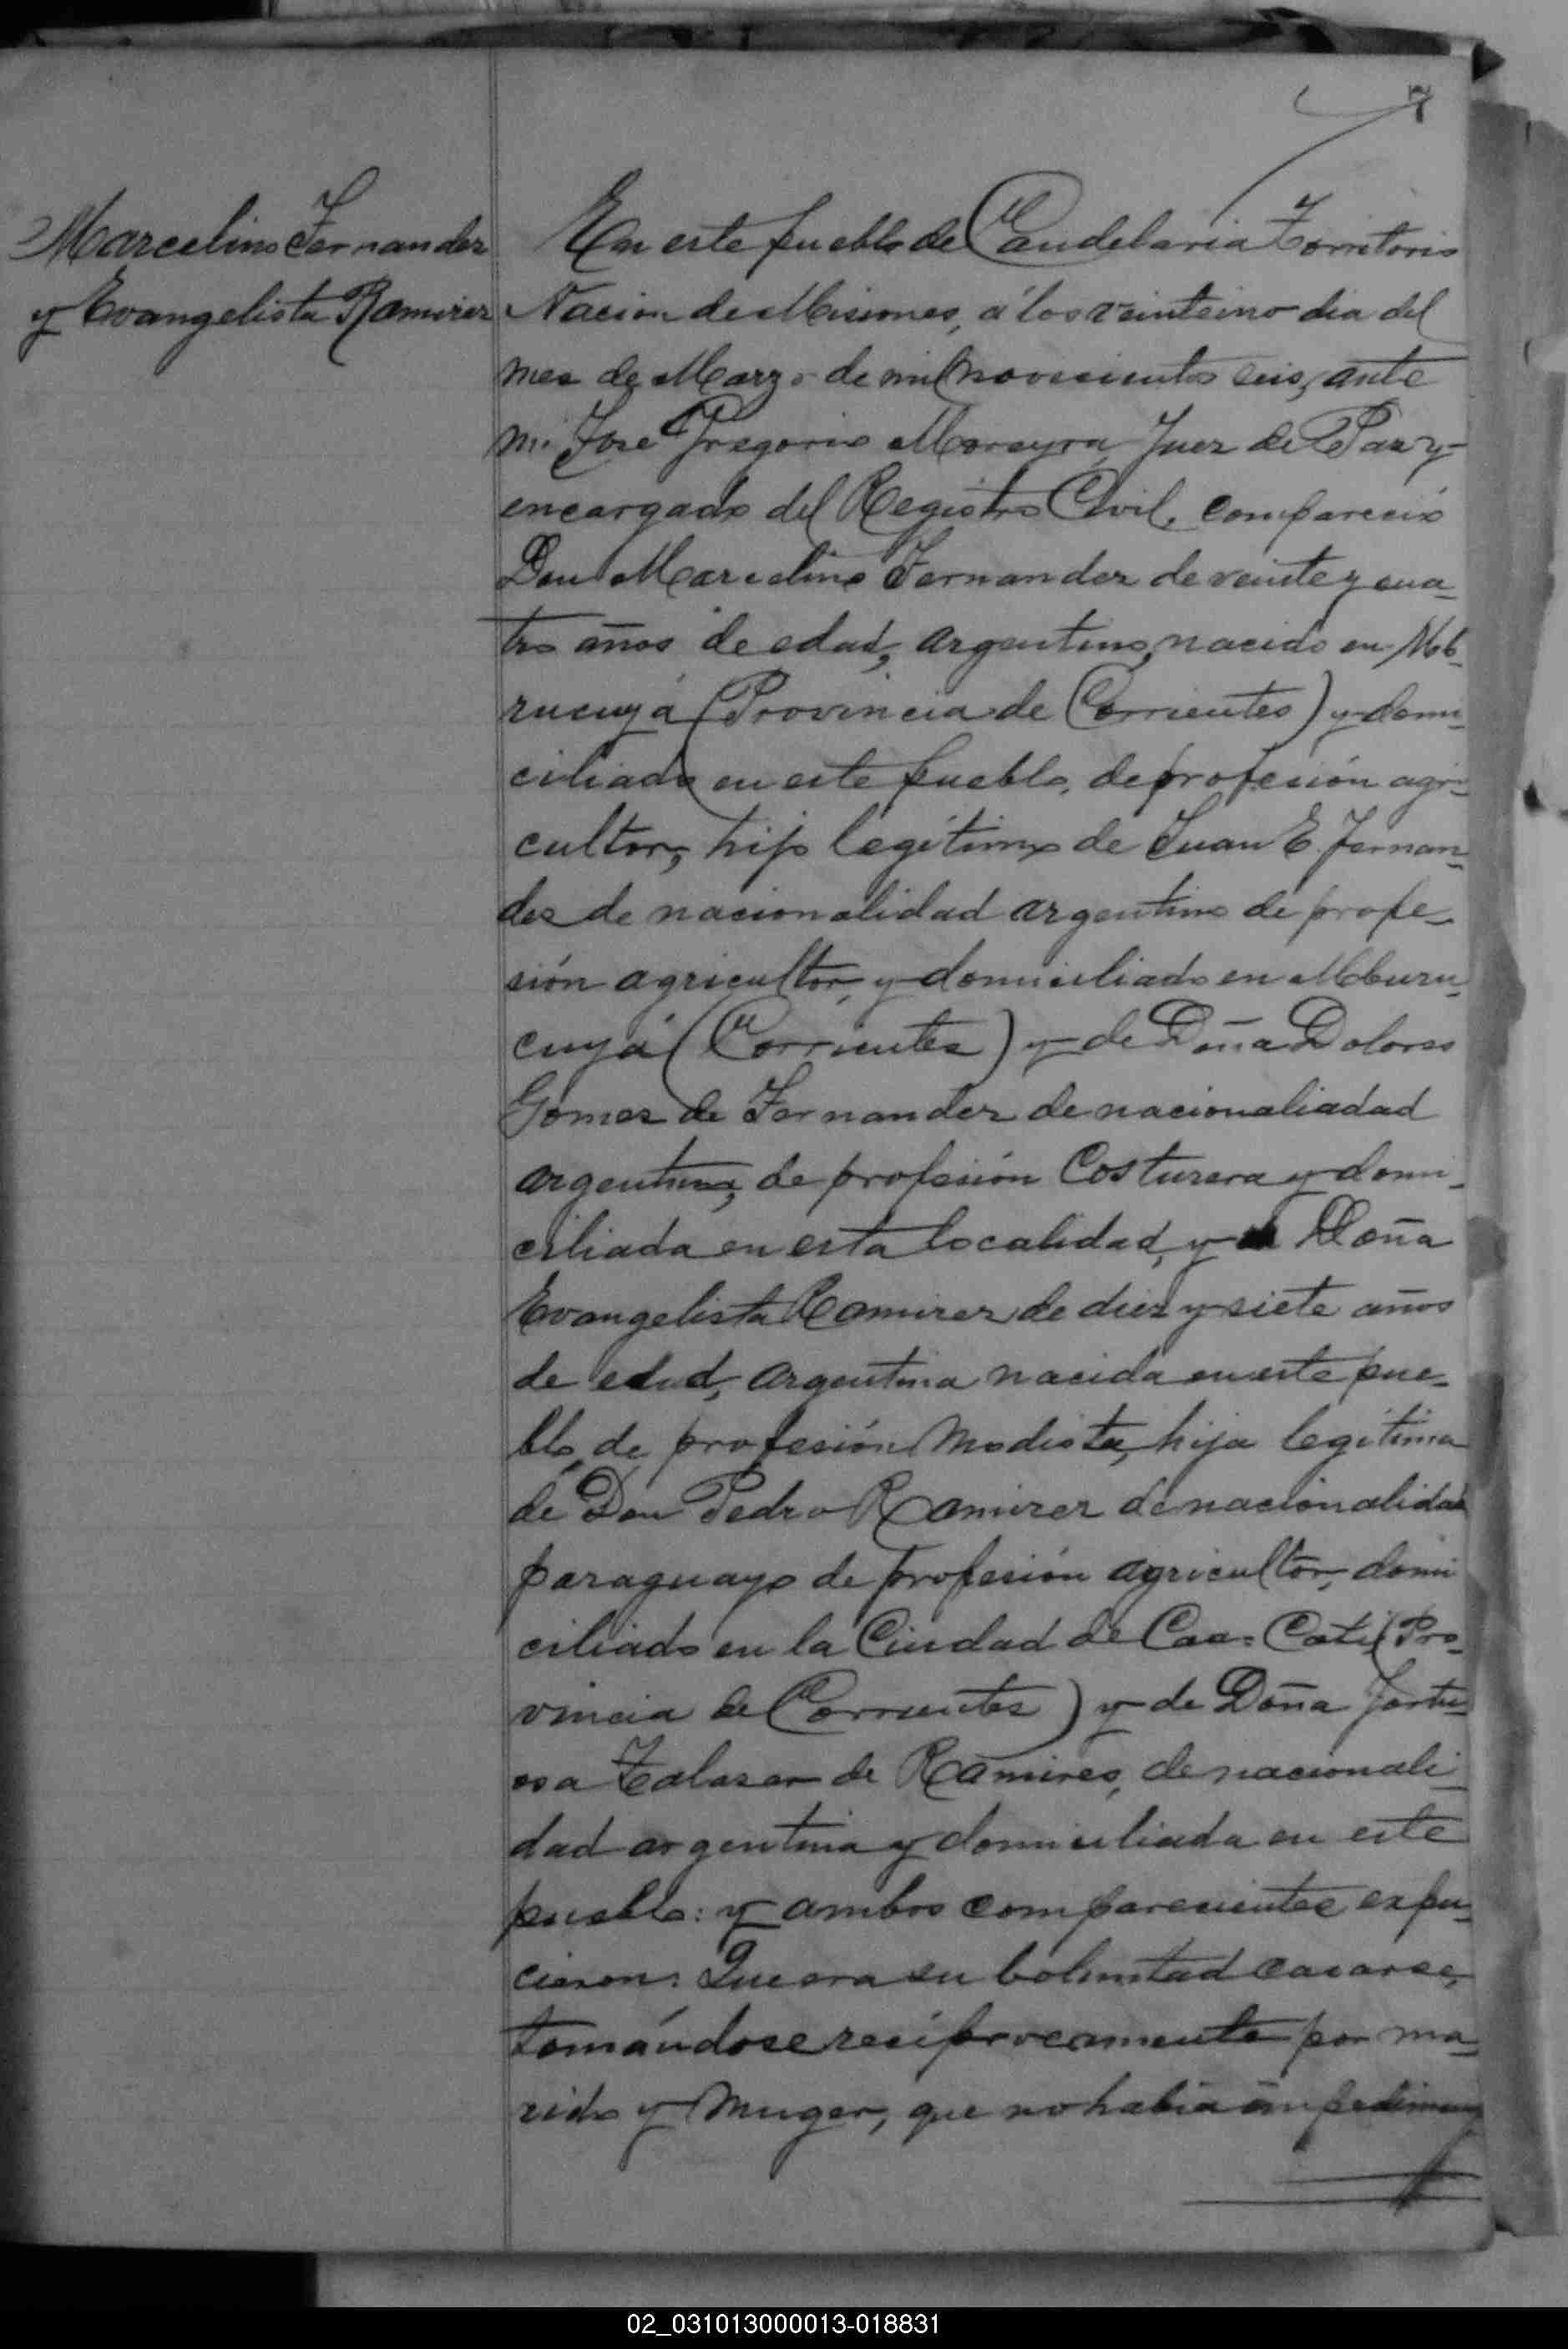 7
Marcelino Fernandez
y Evangelista Ramirez
En este pueblo de Candelaria Territorio
Nacion de Misiones, á los veinteino dia del
mes de Marzo de mil novecientos seis, ante
mi José Gregorio Moreyra, Juez de Paz y
encargado del Registro Civil, compareció
Don Marcelino Fernandez de veinte y cua-
tro años de edad, argentino, nacido en Mb-
rucuyá (Provincia de Corrientes) y domi-
ciliado en este pueblo, de profesión agri-
cultor, hijo legítimo de Juan E. Fernan-
des de nacionalidad argentino de profe-
sión agricultor, y domiciliado en Mburu-
cuyá (Corrientes) y de Doña Dolores
Gomez de Fernandez de nacionaliadad
argentina, de profesión Costurera y domi-
ciliada en esta localidad, y Doña
Evangelista Ramirez de diez y siete años
de edad, argentina nacida en este pue-
blo, de profesión Modista, hija legítima
de Don Pedro Ramirez de nacionalidad
paraguayo de profesión agricultor, domi
ciliado en la Ciudad de Caa-Catí (Pro-
vincia de Corrientes) y de Doña Fortu-
osa Zalasar de Ramires, de nacionali-
dad argentina y domiciliada en este
pueblo: y ambos comparecientes expu-
cieron: Que era su boluntad casarse,
tomándose recíprocamente por ma-
rido y Muger, que no habia impedimen
02_031013000013-018831